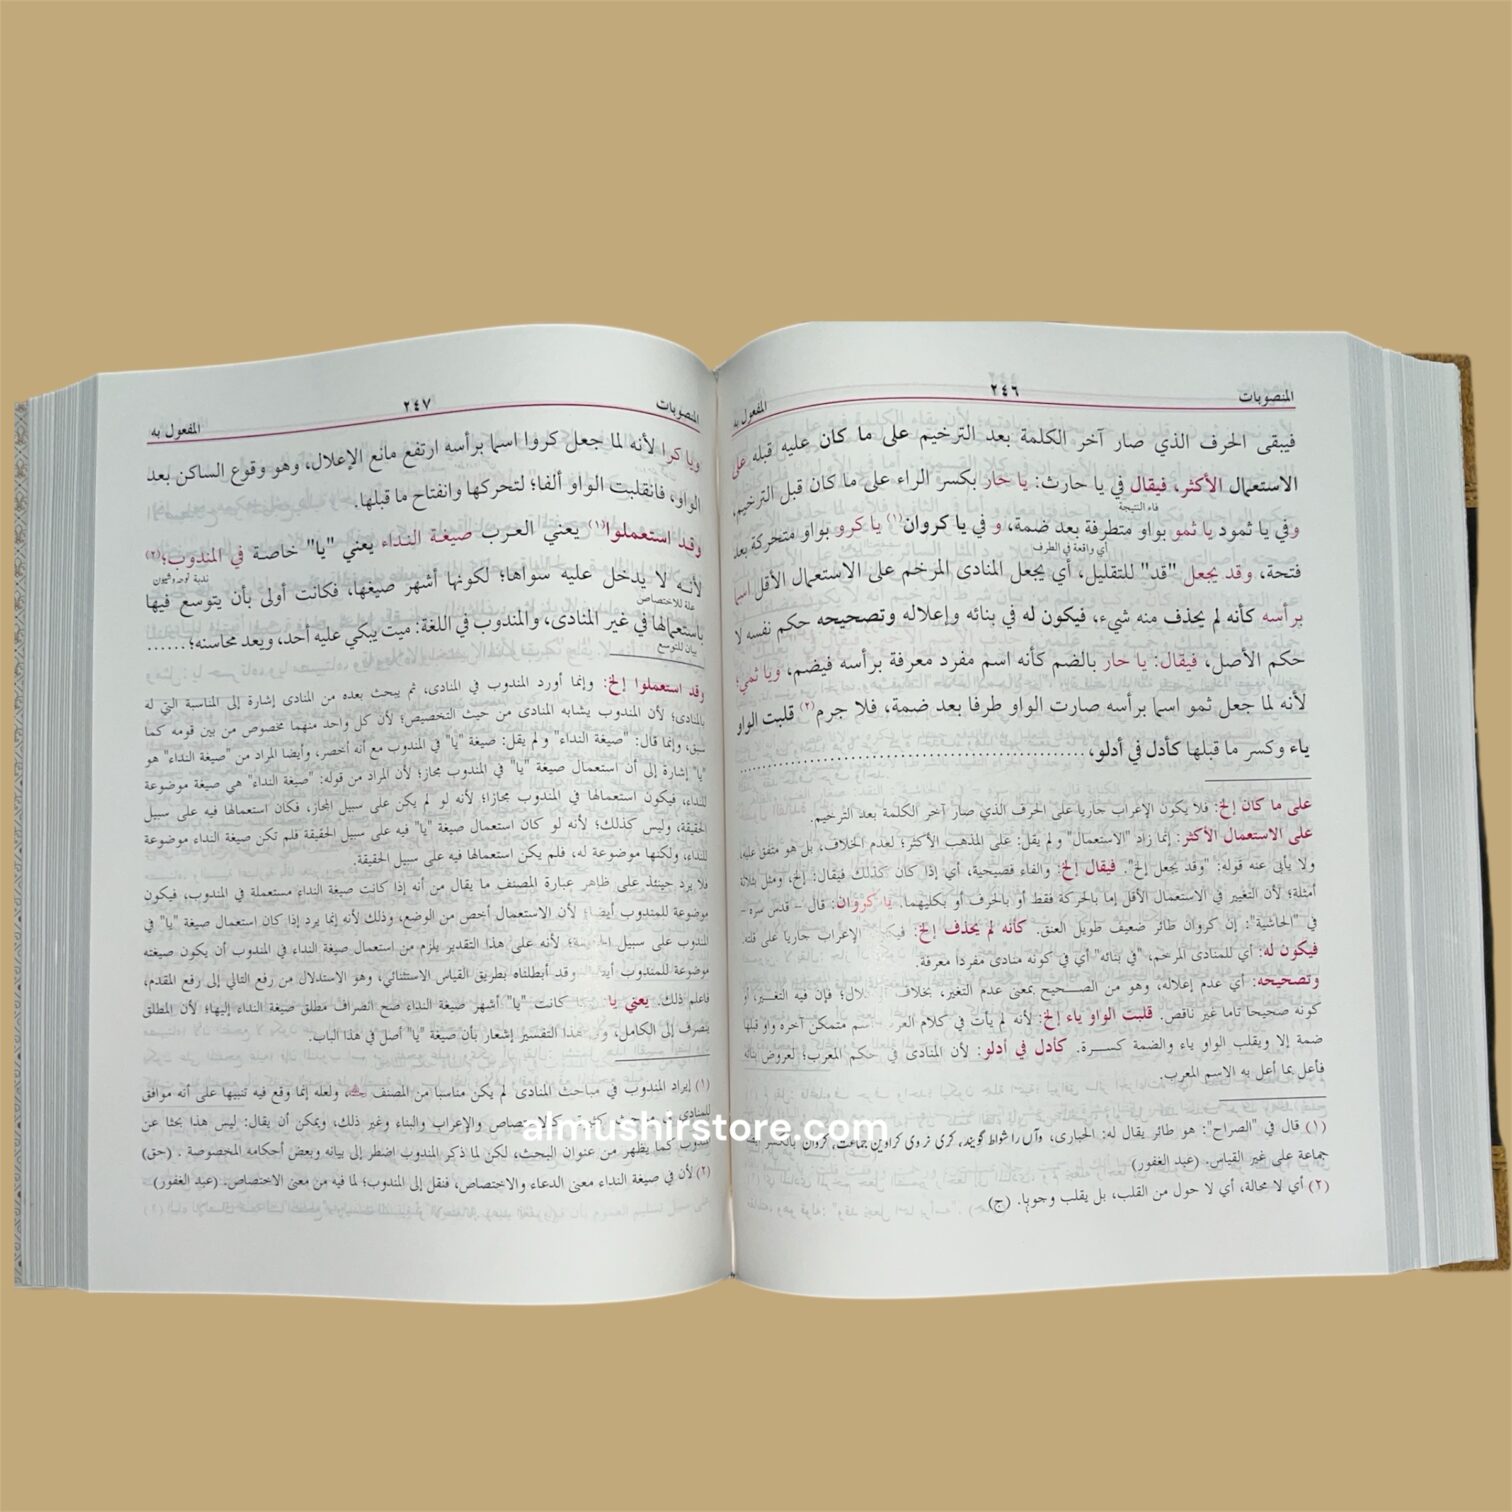 المنصوبات ٢٤٦ المفعول به
فيبقى الحرف الذي صار آخر الكلمة بعد الترخيم على ما كان عليه قبله على
الاستعمال الأكثر، فيقال في يا حارث: يا حار بكسر الراء على ما كان قبل الترخيم،
فاء النتيجة
وفي يا ثمود يا ثمو بواو متطرفة بعد ضمة، و في يا كروان(١) يا كرو بواو متحركة بعد
أي واقعة في الطرف
فتحة، وقد يجعل "قد" للتقليل، أي يجعل المنادى المرخم على الاستعمال الأقل اسما
برأسه كأنه لم يحذف منه شيء، فيكون له في بنائه وإعلاله وتصحيحه حكم نفسه لا
حكم الأصل، فيقال: يا حار بالضم كأنه اسم مفرد معرفة برأسه فيضم، ويا ثمي؛
لأنه لما جعل ثمو اسما برأسه صارت الواو طرفا بعد ضمة، فلا جرم(٢) قلبت الواو
ياء وكسر ما قبلها كأدل في أدلو،
على ما كان إلخ: فلا يكون الإعراب جاريا على الحرف الذي صار آخر الكلمة بعد الترخيم.
على الاستعمال الأكثر: إنما زاد "الاستعمال" ولم يقل: على المذهب الأكثر؛ لعدم الخلاف، بل هو متفق عليه،
ولا يأبى عنه قوله: "وقد يجعل إلخ". فيقال إلخ: والفاء فصيحية، أي إذا كان كذلك فيقال: إلخ، ومثل بثلاثة
أمثلة؛ لأن التغيير في الاستعمال الأقل إما بالحركة فقط أو بالحرف أو بكليهما. يا كروان: قال – قدس سره –
في "الحاشية": إن كروان طائر ضعيف طويل العنق. كأنه لم يحذف إلخ: الإعراب جاريا على
فيكون له: أي للمنادى المرخم، "في بنائه" أي في كونه منادى مفردا معرفة.
وتصحيحه: أي عدم إعلاله، وهو من الصحيح بمعنى عدم التغير، بخلاف فإن فيه التغير، أو
كونه صحيحا تاما غير ناقص. قلبت الواو ياء إلخ: لأنه لم يأت في كلام متمكن آخره واو قبلها
ضمة إلا ويقلب الواو ياء والضمة كسرة. كأدل في أدلو: لأن المنادى في حكم المعرب؛ لعروض بنائه
فأعل بما أعل به الاسم المعرب.
(١) قال في "الصراح": هو طائر يقال له: الحبارى، وآں را شواط گویند، كرى نر وى كراوين جماعت، كروان بالكسر
جماعة على غير القياس. (عبد الغفور)
(٢) أي لا محالة، أي لا حول من القلب، بل يقلب وجوبا. (ج)
المنصوبات ٢٤٧ المفعول به
ويا كرا لأنه لما جعل كروا اسما برأسه ارتفع مانع الإعلال، وهو وقوع الساكن بعد
الواو، فانقلبت الواو ألفا؛ لتحركها وانفتاح ما قبلها.
وقد استعملوا(١) يعني العرب صيغة النداء يعني "يا" خاصة في المندوب؛(٢)
لأنه لا يدخل عليه سواها؛ لكونها أشهر صيغها، فكانت أولى بأن يتوسع فيها
علة للاختصاص
باستعمالها في غير المنادى، والمندوب في اللغة: ميت يبكي عليه أحد، ويعد محاسنه؛
بيان للتوسع
وقد استعملوا إلخ: وإنما أورد المندوب في المنادى، ثم يبحث بعده من المنادى إشارة إلى المناسبة التي له
بالمنادى؛ لأن المندوب يشابه المنادى من حيث التخصيص؛ لأن كل واحد منهما مخصوص من بين قومه كما
سبق، وإنما قال: "صيغة النداء" ولم يقل: صيغة "يا" في المندوب مع أنه أخصر، وأيضا المراد من "صيغة النداء" هو
"يا" إشارة إلى أن استعمال صيغة "يا" في المندوب مجاز؛ لأن المراد من قوله: "صيغة النداء" هي صيغة موضوعة
للنداء، فيكون استعمالها في المندوب مجازا؛ لأنه لو لم يكن على سبيل المجاز، فكان استعمالها فيه على سبيل
الحقيقة، وليس كذلك؛ لأنه لو كان استعمال صيغة "يا" فيه على سبيل الحقيقة فلم تكن صيغة النداء موضوعة
للنداء، ولكنها موضوعة له، فلم يكن استعمالها فيه على سبيل الحقيقة.
فلا يرد حينئذ على ظاهر عبارة المصنف ما يقال من أنه إذا كانت صيغة النداء مستعملة في المندوب، فيكون
موضوعة للمندوب أيضا؛ لأن الاستعمال أخص من الوضع، وذلك لأنه إنما يرد إذا كان استعمال صيغة "يا" في
المندوب على سبيل لأنه على هذا التقدير يلزم من استعمال صيغة النداء في المندوب أن يكون صيغته
موضوعة للمندوب وقد أبطلناه بطريق القياس الاستثنائي، وهو الاستدلال من رفع التالي إلى رفع المقدم،
فاعلم ذلك. يعني يا كانت "يا" أشهر صيغة النداء صح انصراف مطلق صيغة النداء إليها؛ لأن المطلق
ينصرف إلى الكامل، هذا التفسير إشعار بأن صيغة "يا" أصل في هذا الباب.
(١) إيراد المندوب في مباحث المنادى لم يكن مناسبا من المصنف ، ولعله إنما وقع فيه تنبيها على أنه موافق
للمنادى في مباحث كثيرة والإعراب والبناء وغير ذلك، ويمكن أن يقال: ليس هذا بحثا عن
المندوب كما يظهر من عنوان البحث، لكن لما ذكر المندوب اضطر إلى بيانه وبعض أحكامه المخصوصة . (حق)
(٢) لأن في صيغة النداء معنى الدعاء والاختصاص، فنقل إلى المندوب؛ لما فيه من معنى الاختصاص. (عبد الغفور)
almushirstore.com